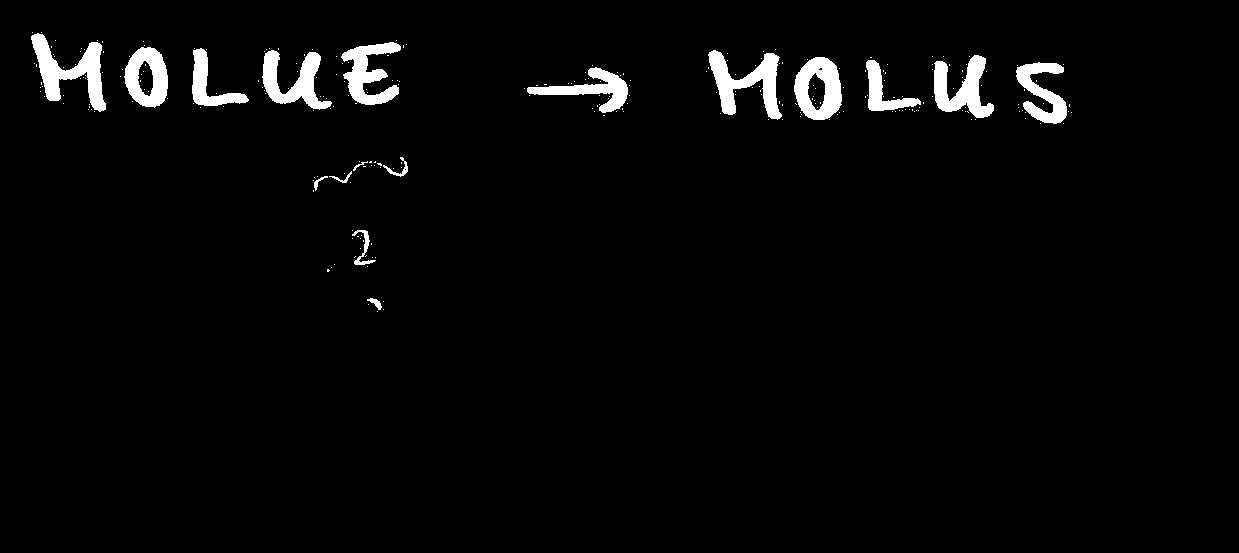 MOLUE → MOLUS
2